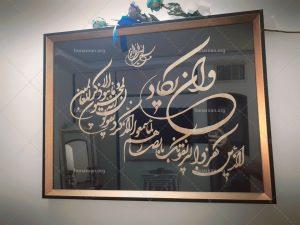 بسم الله الرحمن الرحیم
وان یکاد
الذین کفروا لیزلقونک بابصارهم
لما سمعوا الذکر و یقولون
انه لمجنون و ما هو الا ذکر للعالمین
honaruan.org